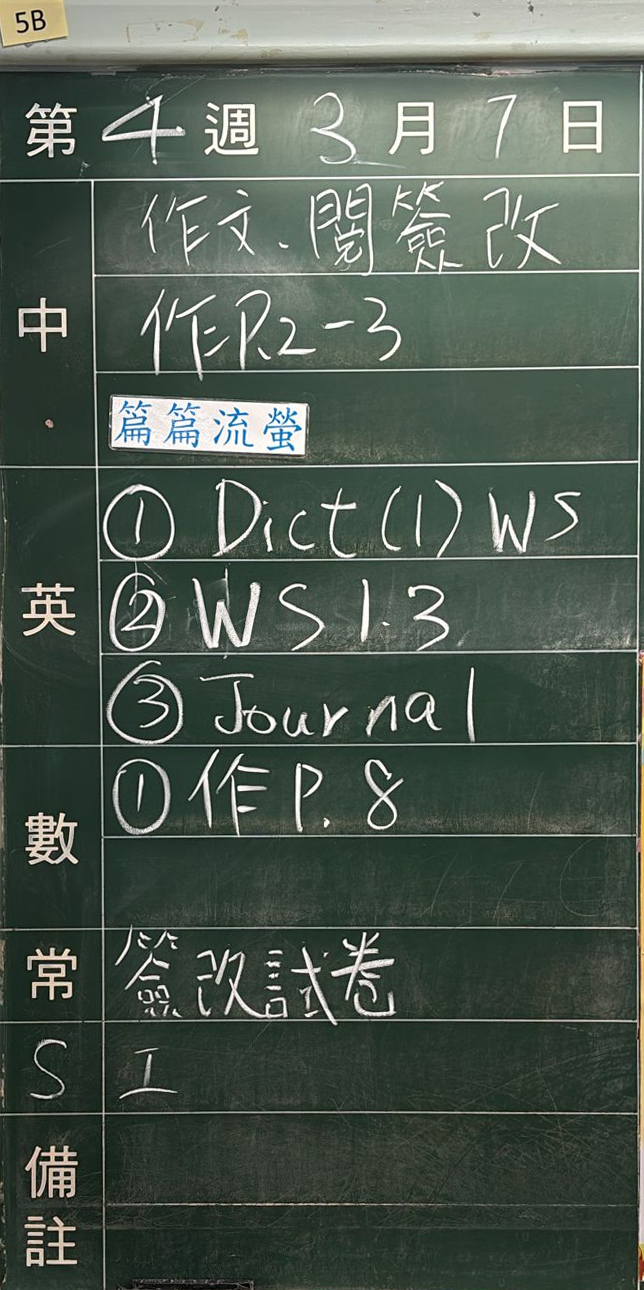 5B
第 4 週 3 月 7 日
中
作文、閱簽改
作P.2-3
篇篇流螢
英
① Dict(1) WS
② WS 1.3
③ Journal
數
① 作 P. 8
常 簽改試卷
S 工
備註